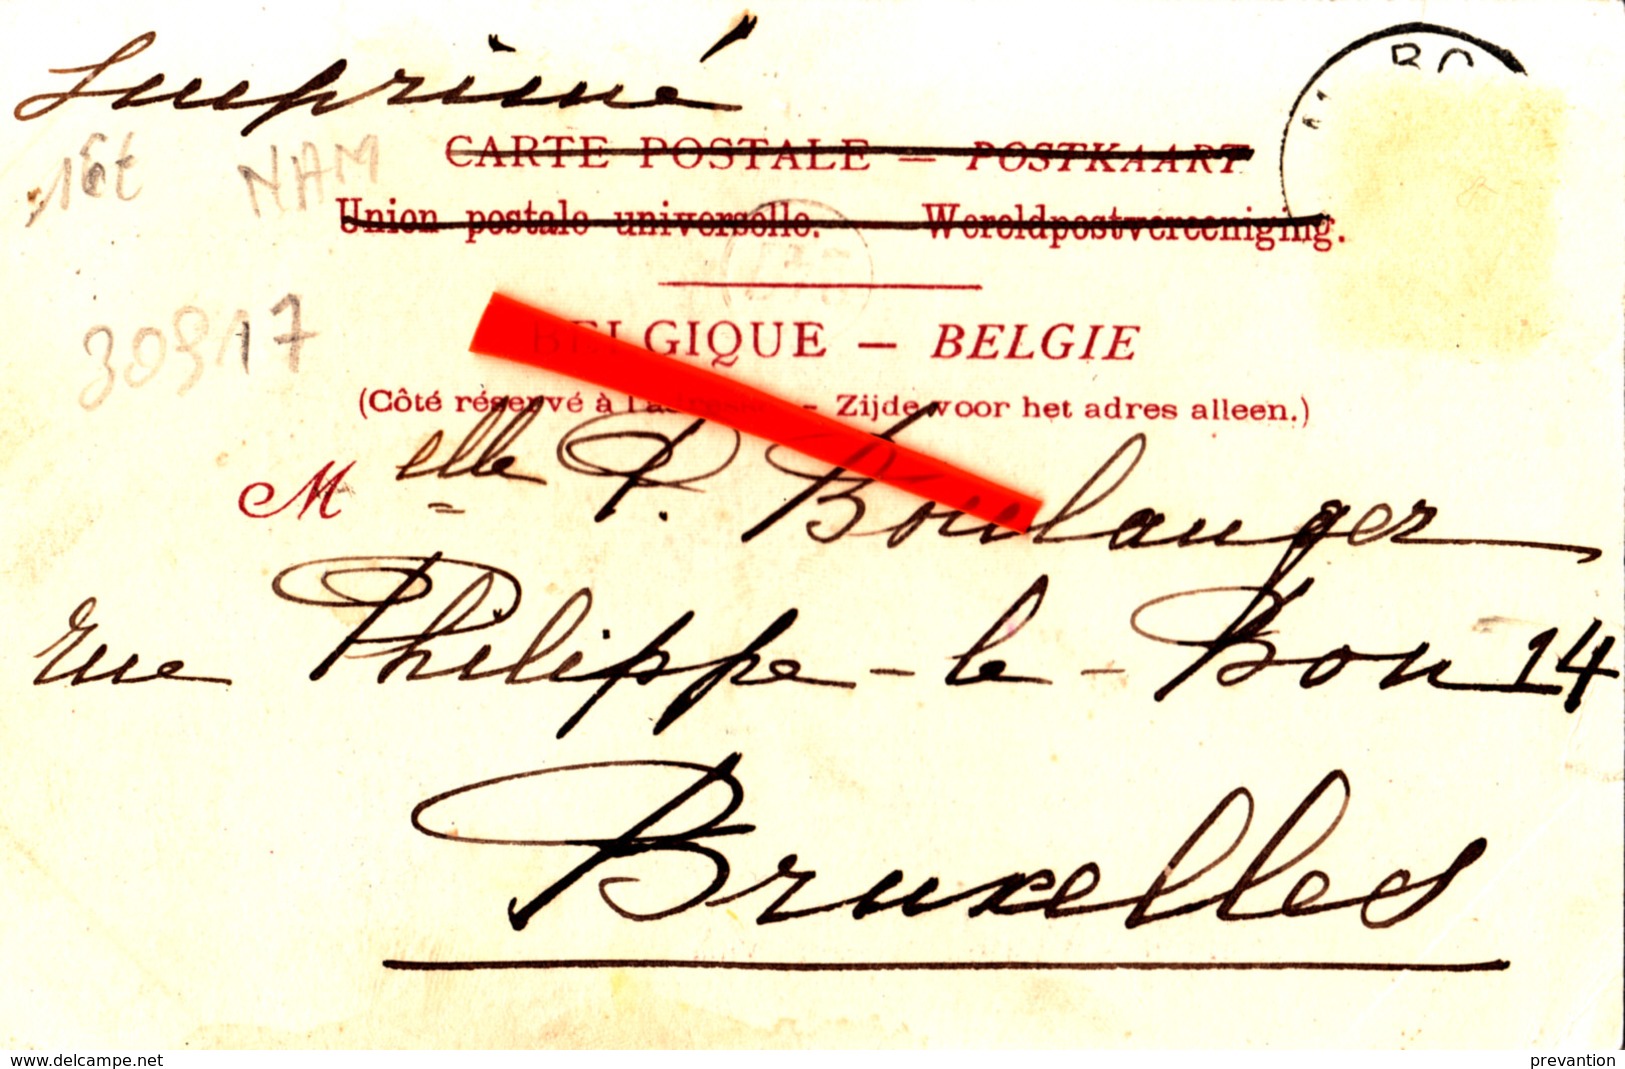 Imprimé
CARTE POSTALE — POSTKAART
NAM
Union postale universelle. Wereldpostvereeniging.
30917
BELGIQUE — BELGIE
(Côté réservé à l'adresse — Zijde voor het adres alleen.)
Melle P. Boulanger
rue Philippe-le-Bon 14
Bruxelles
www.delcampe.net
prevantion